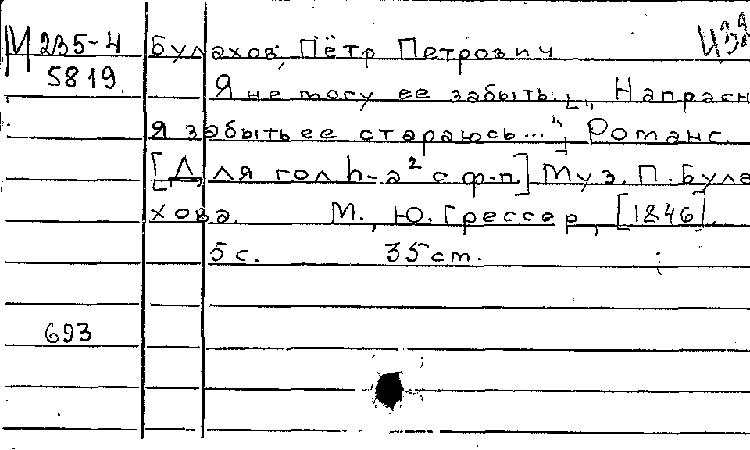 М 235-4 Булахов, Пётр Петрович
5819 Я не могу ее забыть. [„ Напрасн
я забыть ее стараюсь..."] Романс.
[Для гол h-a² с ф-п] Муз. П. Була
хова. М., Ю. Грессер, [1846].
5 с. 35 ст.
693